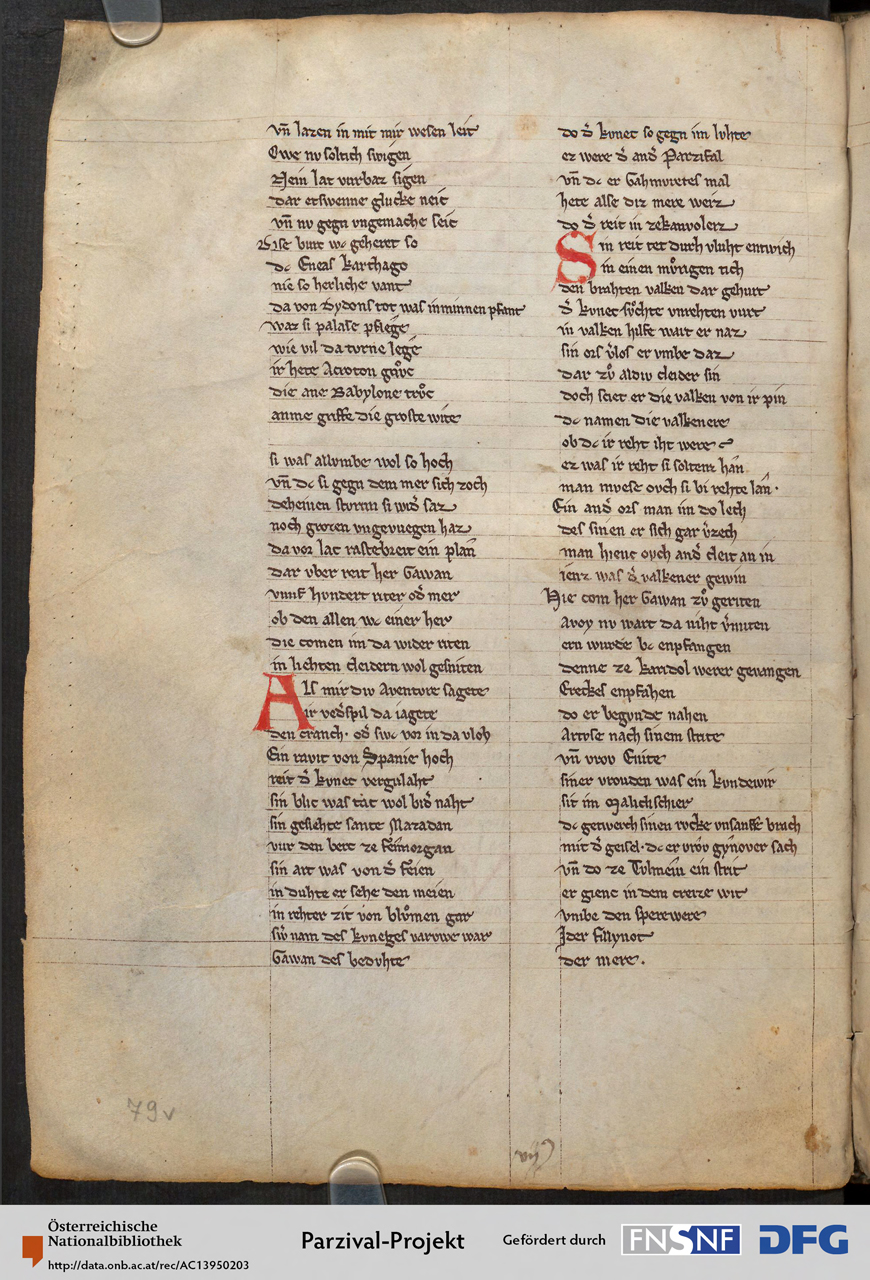 vn̄ lazen in mit mir wesen leit
Owe nv soltich swigen
Nein lat vurbaz sigen
dar etswenne glucke neic
vn̄ nv gegn vngemache seic
Dise burc wc geheret so
dc Eneas karthago
nie so herliche vant
da von dydons tot was in minnen pfant
waz si palase pflege
wie vil da turne lege
ir hete Acroton gnvͦc
die ane Babylone trvͦc
anme griffe die groste wite
si was allvmbe wol so hoch
vn̄ dc si gegn dem mer sich zoch
deheinen sturm si wid᷑ saz
noch grozen vngevuegen haz
da vor lac rastebreit ein plan
dar vber reit her Gawan
vumf hvndert riter od᷑ mer
ob den allen wc einer her
die comen im da wider riten
in liehten cleidern wol gesniten
Als mir div Aventvre sagete
ir ved᷑spil da iagete
den cranch · od᷑ swc vor in da vloh
Ein ravit von Spanie hoch
reit d᷑ kvnec vergulaht
sin blic was tac wol bi d᷑ naht
sin geslehte sante Mazadan
vur den berc ze feimorgan
sin art was von d᷑ feien
in duhte er sehe den meien
in rehter zit von blvͦmen gar
sw᷑ nam des kvneges varuwe war
Gawan des bedvhte
do d᷑ kvnec so gegn im lvhte
ez were d᷑ and᷑ Parzifal
vn̄ dc er Gahmuretes mal
hete alse diz mere weiz
do d᷑ reit in ze kanvoleiz
Sin reit tet durch vluht entwich
in einen mvͦrigen tich
den brahten valken dar gehurt
d᷑ kvnec svͦchte vnrehten vurt
in valken hilfe wart er naz
sin ors v᷑los er vmbe daz
dar zvͦ aldiv cleider sin
doch sciet er die valken von ir pin
dc namen die valkenere
ob dc ir reht iht were
ez was ir reht si soltenz han
man mvese ovch si bi rehte lan ·
Ein and᷑ ors man im do lech
des sinen er sich gar v᷑zech
man hienc ovch and᷑ cleit an in
ienz was d᷑ valkener gewin
Hie com her Gawan zvͦ geriten
Avoy nv wart da niht v᷑miten
ern wurde bc enpfangen
denne ze karidol werer gevangen
Ereckes enpfahen
do er begvnde nahen
Artvse nach sinem strite
vn̄ vrov Enite
siner vrouden was ein kvndewir
sit im Malichschier
dc getwerch sinen rucke vnsanfte brach
mit d᷑ geisel · dc er vrov gynover sach
vn̄ do ze Tvlmein ein strit
er gienc in dem creize wit
vmbe den sperewere
Jder fillynot
der mere .
79v
Österreichische
Nationalbibliothek
http://data.onb.ac.at/rec/AC13950203
Parzival-Projekt
Gefördert durch
FNSNF
DFG